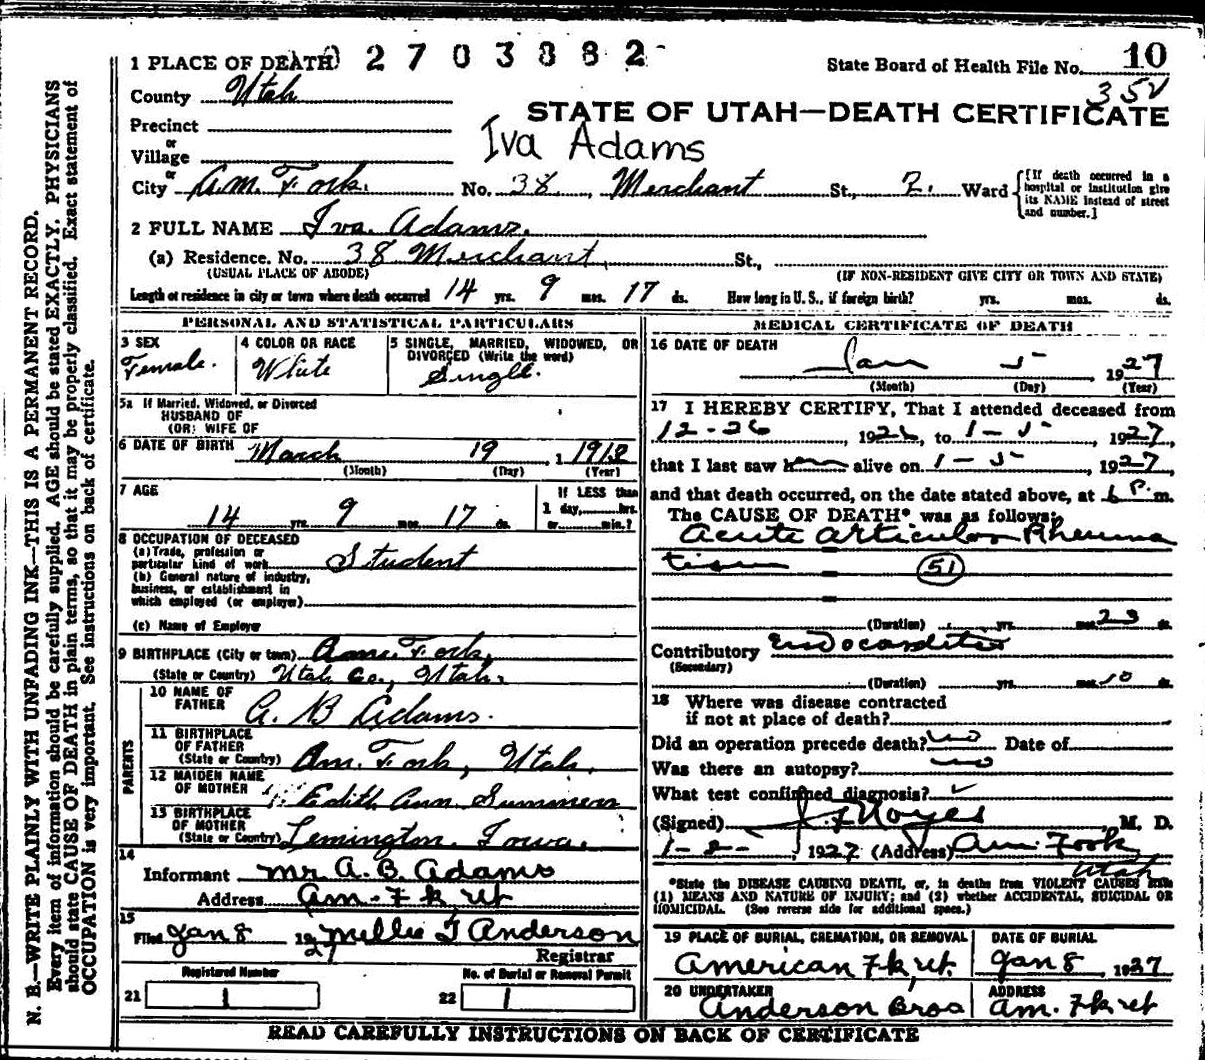 1 PLACE OF DEATH 0 2 7 0 3 8 8 2
State Board of Health File No. 10
County Utah
35V
STATE OF UTAH—DEATH CERTIFICATE
Precinct
or
Village
Iva Adams
or
City Am. Fork. No. 38, Merchant St, 2. Ward
[If death occurred in a hospital or institution give its NAME instead of street and number.]
2 FULL NAME Iva Adams.
(a) Residence. No. 38 Merchant, St.,
(USUAL PLACE OF ABODE) (IF NON-RESIDENT GIVE CITY OR TOWN AND STATE)
Length of residence in city or town where death occurred 14 yrs. 9 mos. 17 ds. How long in U. S., if foreign birth? yrs. mos. ds.
PERSONAL AND STATISTICAL PARTICULARS
3 SEX
Female.
4 COLOR OR RACE
White
5 SINGLE, MARRIED, WIDOWED, OR
DIVORCED (Write the word)
Single.
5a If Married, Widowed, or Divorced
HUSBAND OF
(OR) WIFE OF
6 DATE OF BIRTH March 19 1 1912
(Month) (Day) (Year)
7 AGE
14 yrs. 9 mos. 17 ds.
If LESS than
1 day, hrs.
or min.?
8 OCCUPATION OF DECEASED
(a) Trade, profession or
particular kind of work Student
(b) General nature of industry,
business, or establishment in
which employed (or employer)
(c) Name of Employer
9 BIRTHPLACE (City or town) Am. Fork,
(State or Country) Utah Co., Utah.
PARENTS
10 NAME OF
FATHER A. B Adams.
11 BIRTHPLACE
OF FATHER
(State or Country) Am. Fork, Utah.
12 MAIDEN NAME
OF MOTHER Edith Ann Summers
13 BIRTHPLACE
OF MOTHER
(State or Country) Lemington, Iowa.
14
Informant Mr A. B. Adams
Address Am. Fk Ut
15
Filed Jan 8 1927 Millie T Anderson
Registrar
Registered Number
21 1
No. of Burial or Removal Permit
22 1
MEDICAL CERTIFICATE OF DEATH
16 DATE OF DEATH
Jan 5 1927
(Month) (Day) (Year)
17 I HEREBY CERTIFY, That I attended deceased from
12-26, 1926, to 1-5, 1927,
that I last saw her alive on 1-5, 1927,
and that death occurred, on the date stated above, at 6 P. m.
The CAUSE OF DEATH* was as follows:
Acute articular Rheuma
tism 51
(Duration) yrs. mos. 23 ds.
Contributory Endocarditis
(Secondary)
(Duration) yrs. mos. 10 ds.
18 Where was disease contracted
if not at place of death?
Did an operation precede death? no Date of
Was there an autopsy? no
What test confirmed diagnosis?
(Signed) Noyes, M. D.
1-8-, 1927 (Address) Am. Fork
Utah
*State the DISEASE CAUSING DEATH, or, in deaths from VIOLENT CAUSES state
(1) MEANS AND NATURE OF INJURY; and (2) whether ACCIDENTAL, SUICIDAL OR
HOMICIDAL. (See reverse side for additional space.)
19 PLACE OF BURIAL, CREMATION, OR REMOVAL
American Fk Ut.
DATE OF BURIAL
Jan 8, 1927
20 UNDERTAKER
Anderson Bros
ADDRESS
Am. Fk Ut
READ CAREFULLY INSTRUCTIONS ON BACK OF CERTIFICATE
N. B.—WRITE PLAINLY WITH UNFADING INK—THIS IS A PERMANENT RECORD.
Every item of information should be carefully supplied. AGE should be stated EXACTLY. PHYSICIANS
should state CAUSE OF DEATH in plain terms, so that it may be properly classified. Exact statement of
OCCUPATION is very important. See instructions on back of certificate.